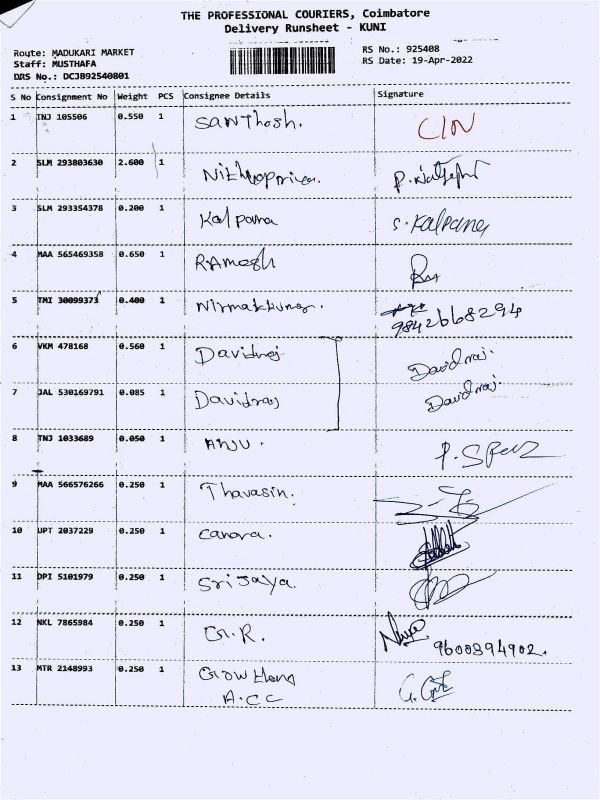 THE PROFESSIONAL COURIERS, Coimbatore
Delivery Runsheet - KUNI
Route: MADUKARI MARKET
RS No.: 925408
Staff: MUSTHAFA
RS Date: 19-Apr-2022
DRS No.: DCJB92540801
S No Consignment No Weight PCS Consignee Details Signature
1 INJ 105506 0.550 1 Santhosh. CIN
2 SLM 293803630 2.600 1
3 SLM 293354378 0.200 1 Kalpana S. Kalpana
4 MAA 565469358 0.650 1 RAMesh
5 TMI 30099373 0.400 1 Nirmalkumar. 9842668294
6 VKM 478168 0.560 1 Davidraj Davidraj.
7 JAL 530169791 0.085 1 Davidraj Davidraj.
8 TNJ 1033689 0.050 1 ANJU.
9 MAA 566576266 0.250 1 Thavasin.
10 UPT 2037229 0.250 1 Canara.
11 DPI 5101979 0.250 1 Sri Jaya.
12 NKL 7865984 0.250 1 G.R. 9600894902.
13 MTR 2148993 0.250 1
A.CC